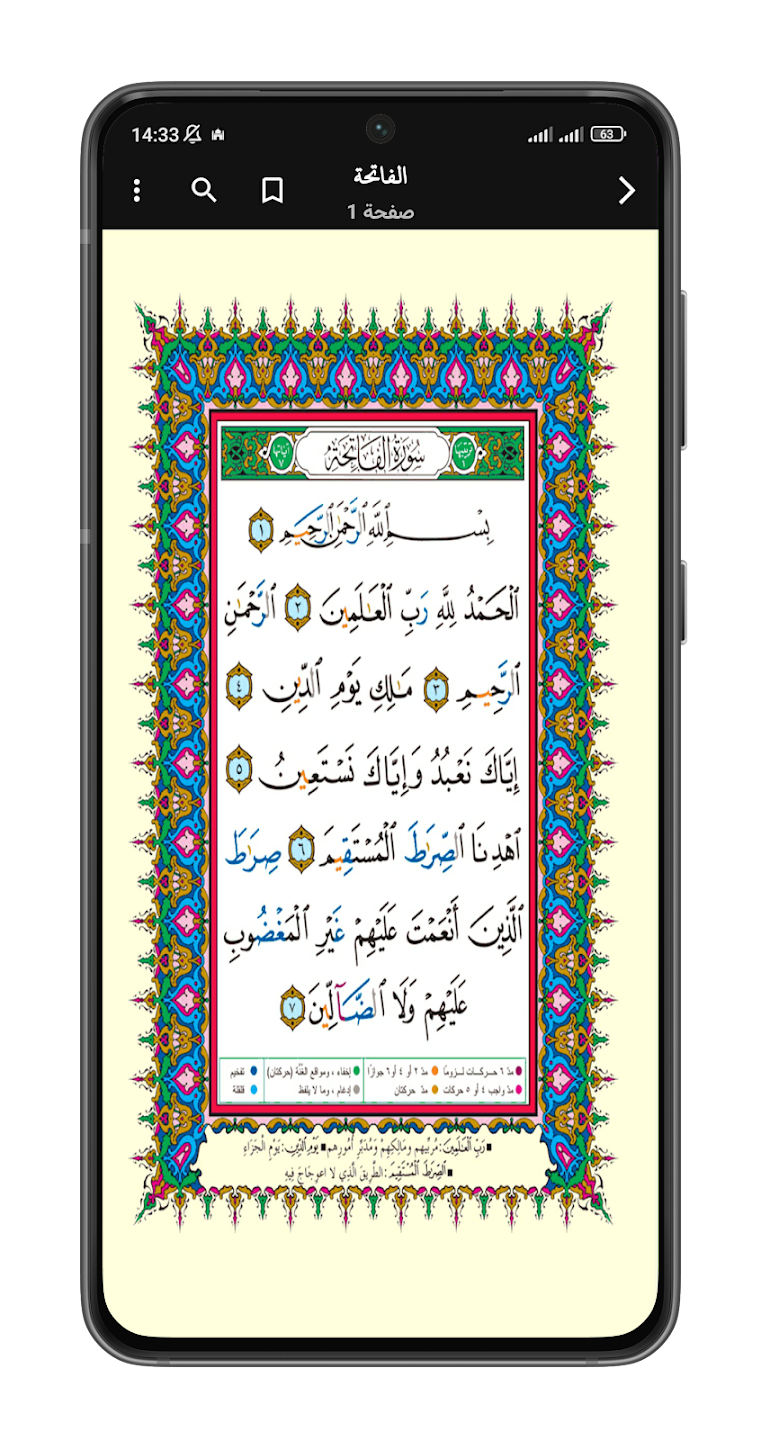 14:33
63
الفاتحة
صفحة 1
ترتيبها ١ سُورَةُ الفَاتِحَةِ آياتها ٧
بِسْمِ ٱللَّهِ ٱلرَّحْمَٰنِ ٱلرَّحِيمِ ١
ٱلْحَمْدُ لِلَّهِ رَبِّ ٱلْعَـٰلَمِينَ ٢ ٱلرَّحْمَـٰنِ
ٱلرَّحِيمِ ٣ مَـٰلِكِ يَوْمِ ٱلدِّينِ ٤
إِيَّاكَ نَعْبُدُ وَإِيَّاكَ نَسْتَعِينُ ٥
ٱهْدِنَا ٱلصِّرَٰطَ ٱلْمُسْتَقِيمَ ٦ صِرَٰطَ
ٱلَّذِينَ أَنْعَمْتَ عَلَيْهِمْ غَيْرِ ٱلْمَغْضُوبِ
عَلَيْهِمْ وَلَا ٱلضَّآلِّينَ ٧
مدّ ٦ حركات لزوماً مدّ ٢ أو ٤ أو ٦ جوازاً إخفاء، ومواقع الغُنَّة (حركتان) تفخيم
مدّ واجب ٤ أو ٥ حركات مدّ حركتان إدغام، وما لا يلفظ قلقلة
رَبِّ الْعَـٰلَمِينَ: مُرَبِّيهِم وَمَالِكِهِمْ وَمُدَبِّرِ أُمُورِهِم يَوْمِ الدِّينِ: يَوْمِ الْجَزَاءِ
الصِّرَٰطَ الْمُسْتَقِيمَ: الطَّرِيقَ الَّذِي لا اعْوِجَاجَ فِيهِ